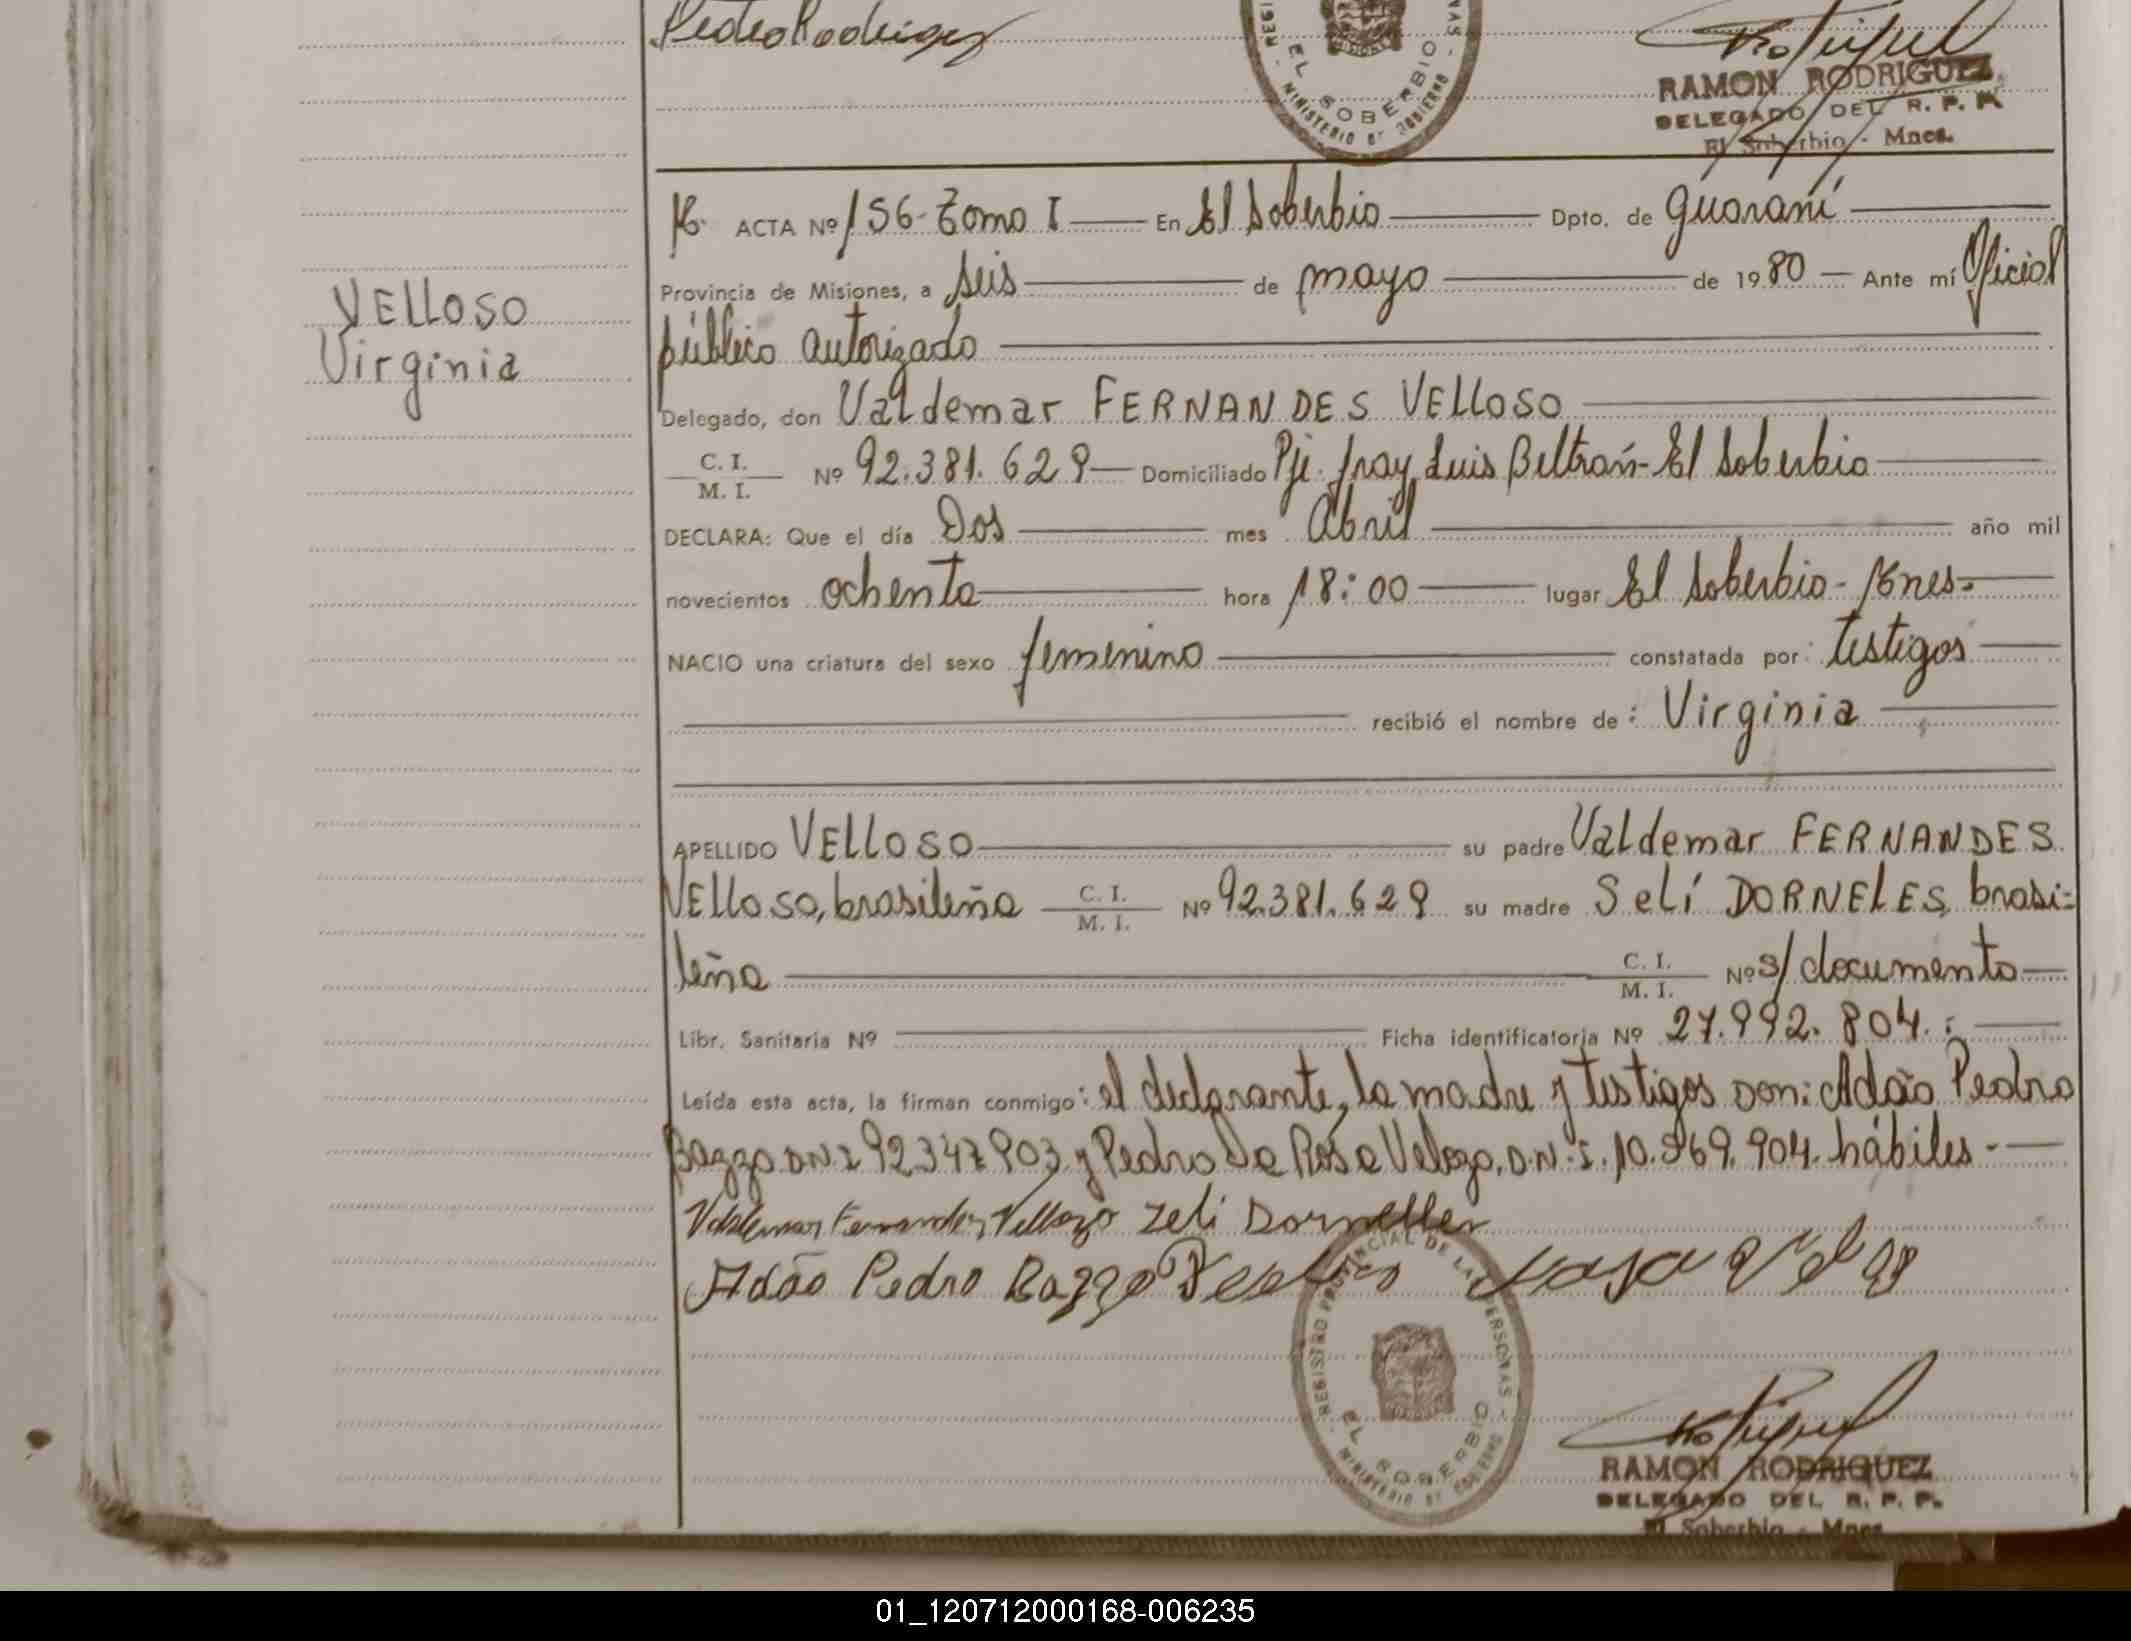 Pedro Rodriguez
EL SOBERBIO
MINISTERIO DE GOBIERNO
RAMON RODRIGUEZ
DELEGADO DEL R. P. P.
El Soberbio - Mnes.
ACTA Nº 156 - Tomo I — En El Soberbio — Dpto. de Guaraní
Provincia de Misiones, a seis — de mayo — de 1980 — Ante mí Oficial
público autorizado
VELLOSO
Virginia
Delegado, don Valdemar FERNANDES VELLOSO
C. I. / M. I. Nº 92.381.629 — Domiciliado Pje. fray Luis Beltrán - El Soberbio
DECLARA: Que el día Dos — mes Abril — año mil
novecientos ochenta — hora 18:00 — lugar El Soberbio - Mnes -
NACIO una criatura del sexo femenino — constatada por: testigos
recibió el nombre de: Virginia
APELLIDO VELLOSO — su padre Valdemar FERNANDES
VELLOSO, brasileña C. I. / M. I. Nº 92.381.629 su madre Selí DORNELES, brasi=
leña — C. I. / M. I. Nº s/documento
Libr. Sanitaria Nº — Ficha identificatoria Nº 27.992.804.-
Leída esta acta, la firman conmigo: el declarante, la madre y testigos Don: Adão Pedro
Bazzo DNI 92347903 y Pedro Da Rosa Velozo, D.N.I. 10.969.904. hábiles -
Valdemar Fernandes Vellozo Zeli Dornelles
Adão Pedro Bazzo
REGISTRO PROVINCIAL DE LAS PERSONAS
EL SOBERBIO
MINISTERIO DE GOBIERNO
RAMON RODRIGUEZ
DELEGADO DEL R. P. P.
El Soberbio - Mnes.
01_120712000168-006235